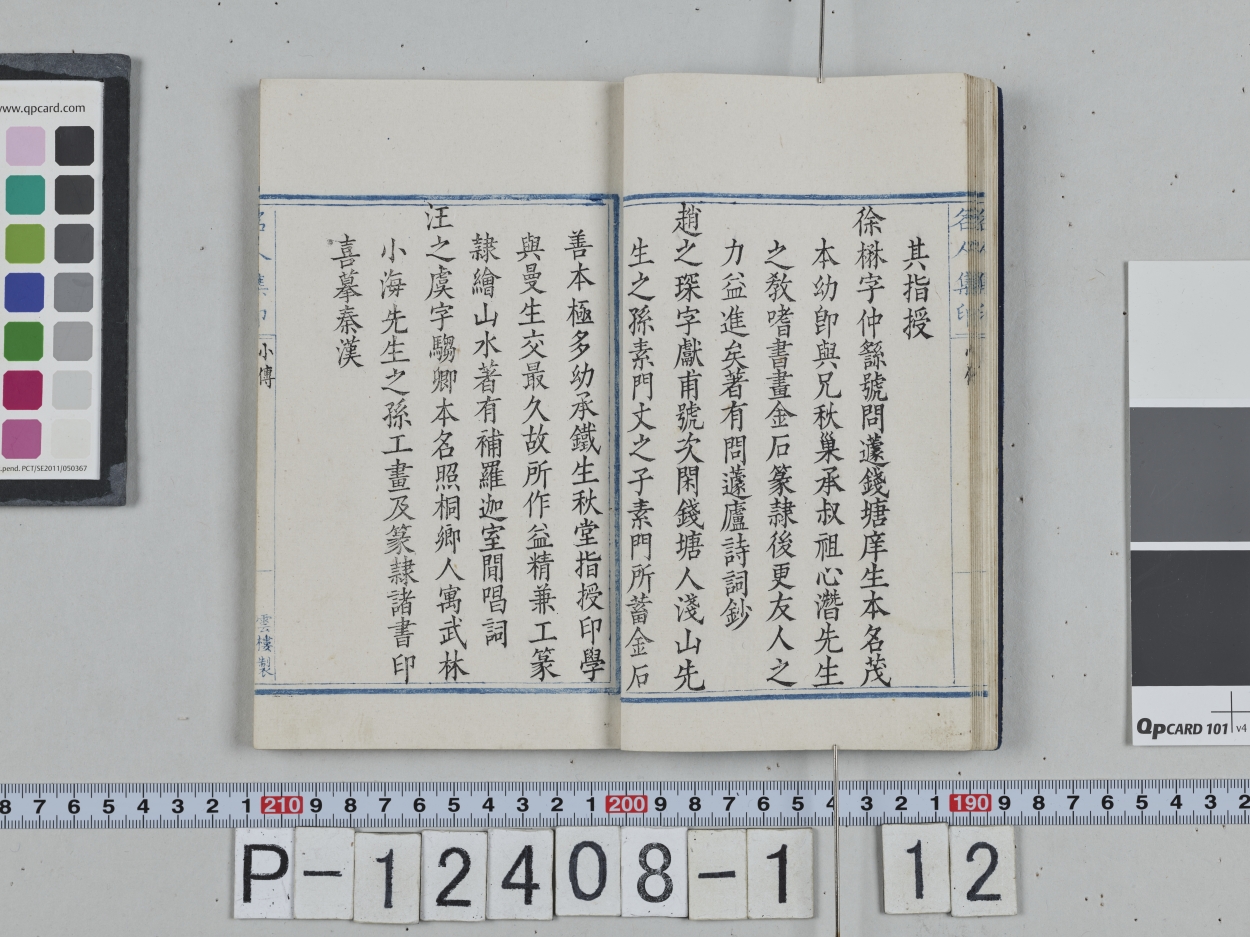 其指授
徐楙字仲繇號問蘧錢塘庠生本名茂
本幼卽與兄秋巢承叔祖心潛先生
之敎嗜書畫金石篆隸後更友人之
力益進矣著有問蘧廬詩詞鈔
趙之琛字獻甫號次閑錢塘人淺山先
生之孫素門丈之子素門所蓄金石
善本極多幼承鐵生秋堂指授印學
與曼生交最久故所作益精兼工篆
隸繪山水著有補羅迦室閒唱詞
汪之虞字騶卿本名照桐鄉人寓武林
小海先生之孫工畫及篆隸諸書印
喜摹秦漢
名人集印
小傳
雲樓製
名人集印
www.qpcard.com
.pend. PCT/SE2011/050367
QPCARD 101 v4
8 7 6 5 4 3 2 1 210 9 8 7 6 5 4 3 2 1 200 9 8 7 6 5 4 3 2 1 190 9 8 7 6 5 4 3 2
P-12408-1 12